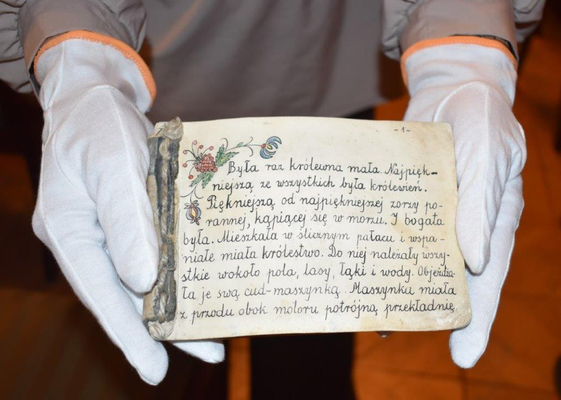 -1-
Była raz królewna mała. Najpięk-
niejszą ze wszystkich była królewien.
Piękniejszą od najpiękniejszej zorzy po-
rannej, kąpiącej się w morzu. I bogata
była. Mieszkała w ślicznym pałacu i wspa-
niałe miała królestwo. Do niej należały wszy-
stkie wokoło pola, lasy, łąki i wody. Objeżdża-
ła je swą cud-maszynką. Maszynka miała
z przodu obok motoru potrójną przekładnię,